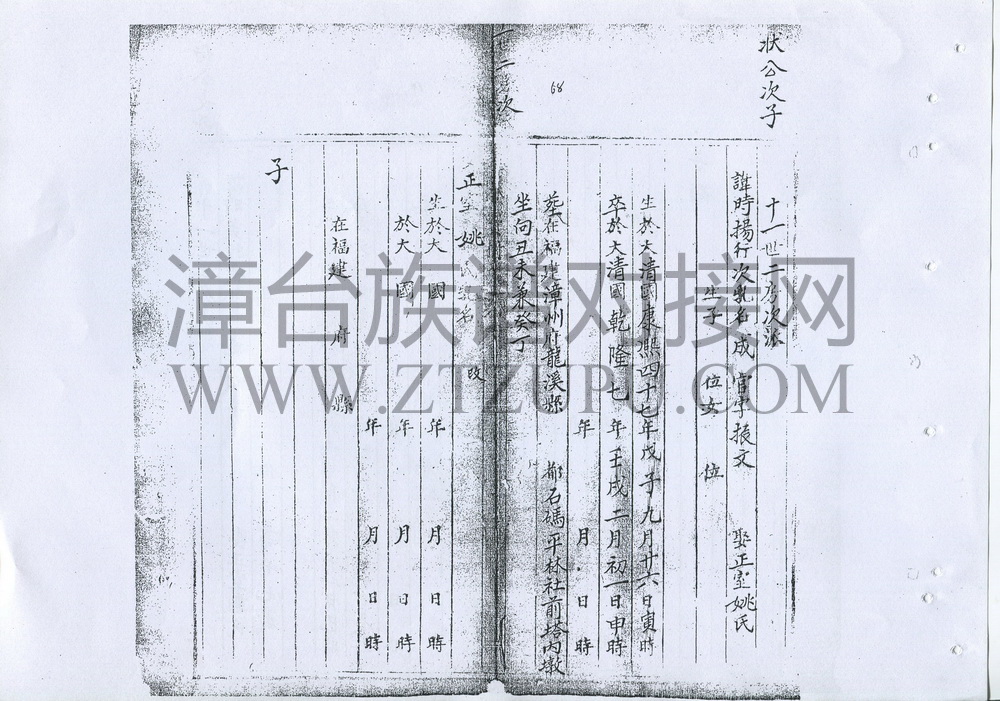 狀公次子
十一世二房次派
諱時揚行次乳名成 官字振文 娶正室姚氏
生子 位女 位
生於大清國康熙四十七年戊子九月十六日寅時
卒於大清國乾隆七年壬戌二月初一日申時
年 月 日 時
葬在福建漳州府龍溪縣 都石碼平林社前塔內墩
坐向丑未兼癸丁
68
次
正室姚氏 名
生於大 國 年 月 日 時
於大 國 年 月 日 時
年 月 日 時
在福建 府 縣
子
漳台族谱对接网
WWW.ZTZUPU.COM